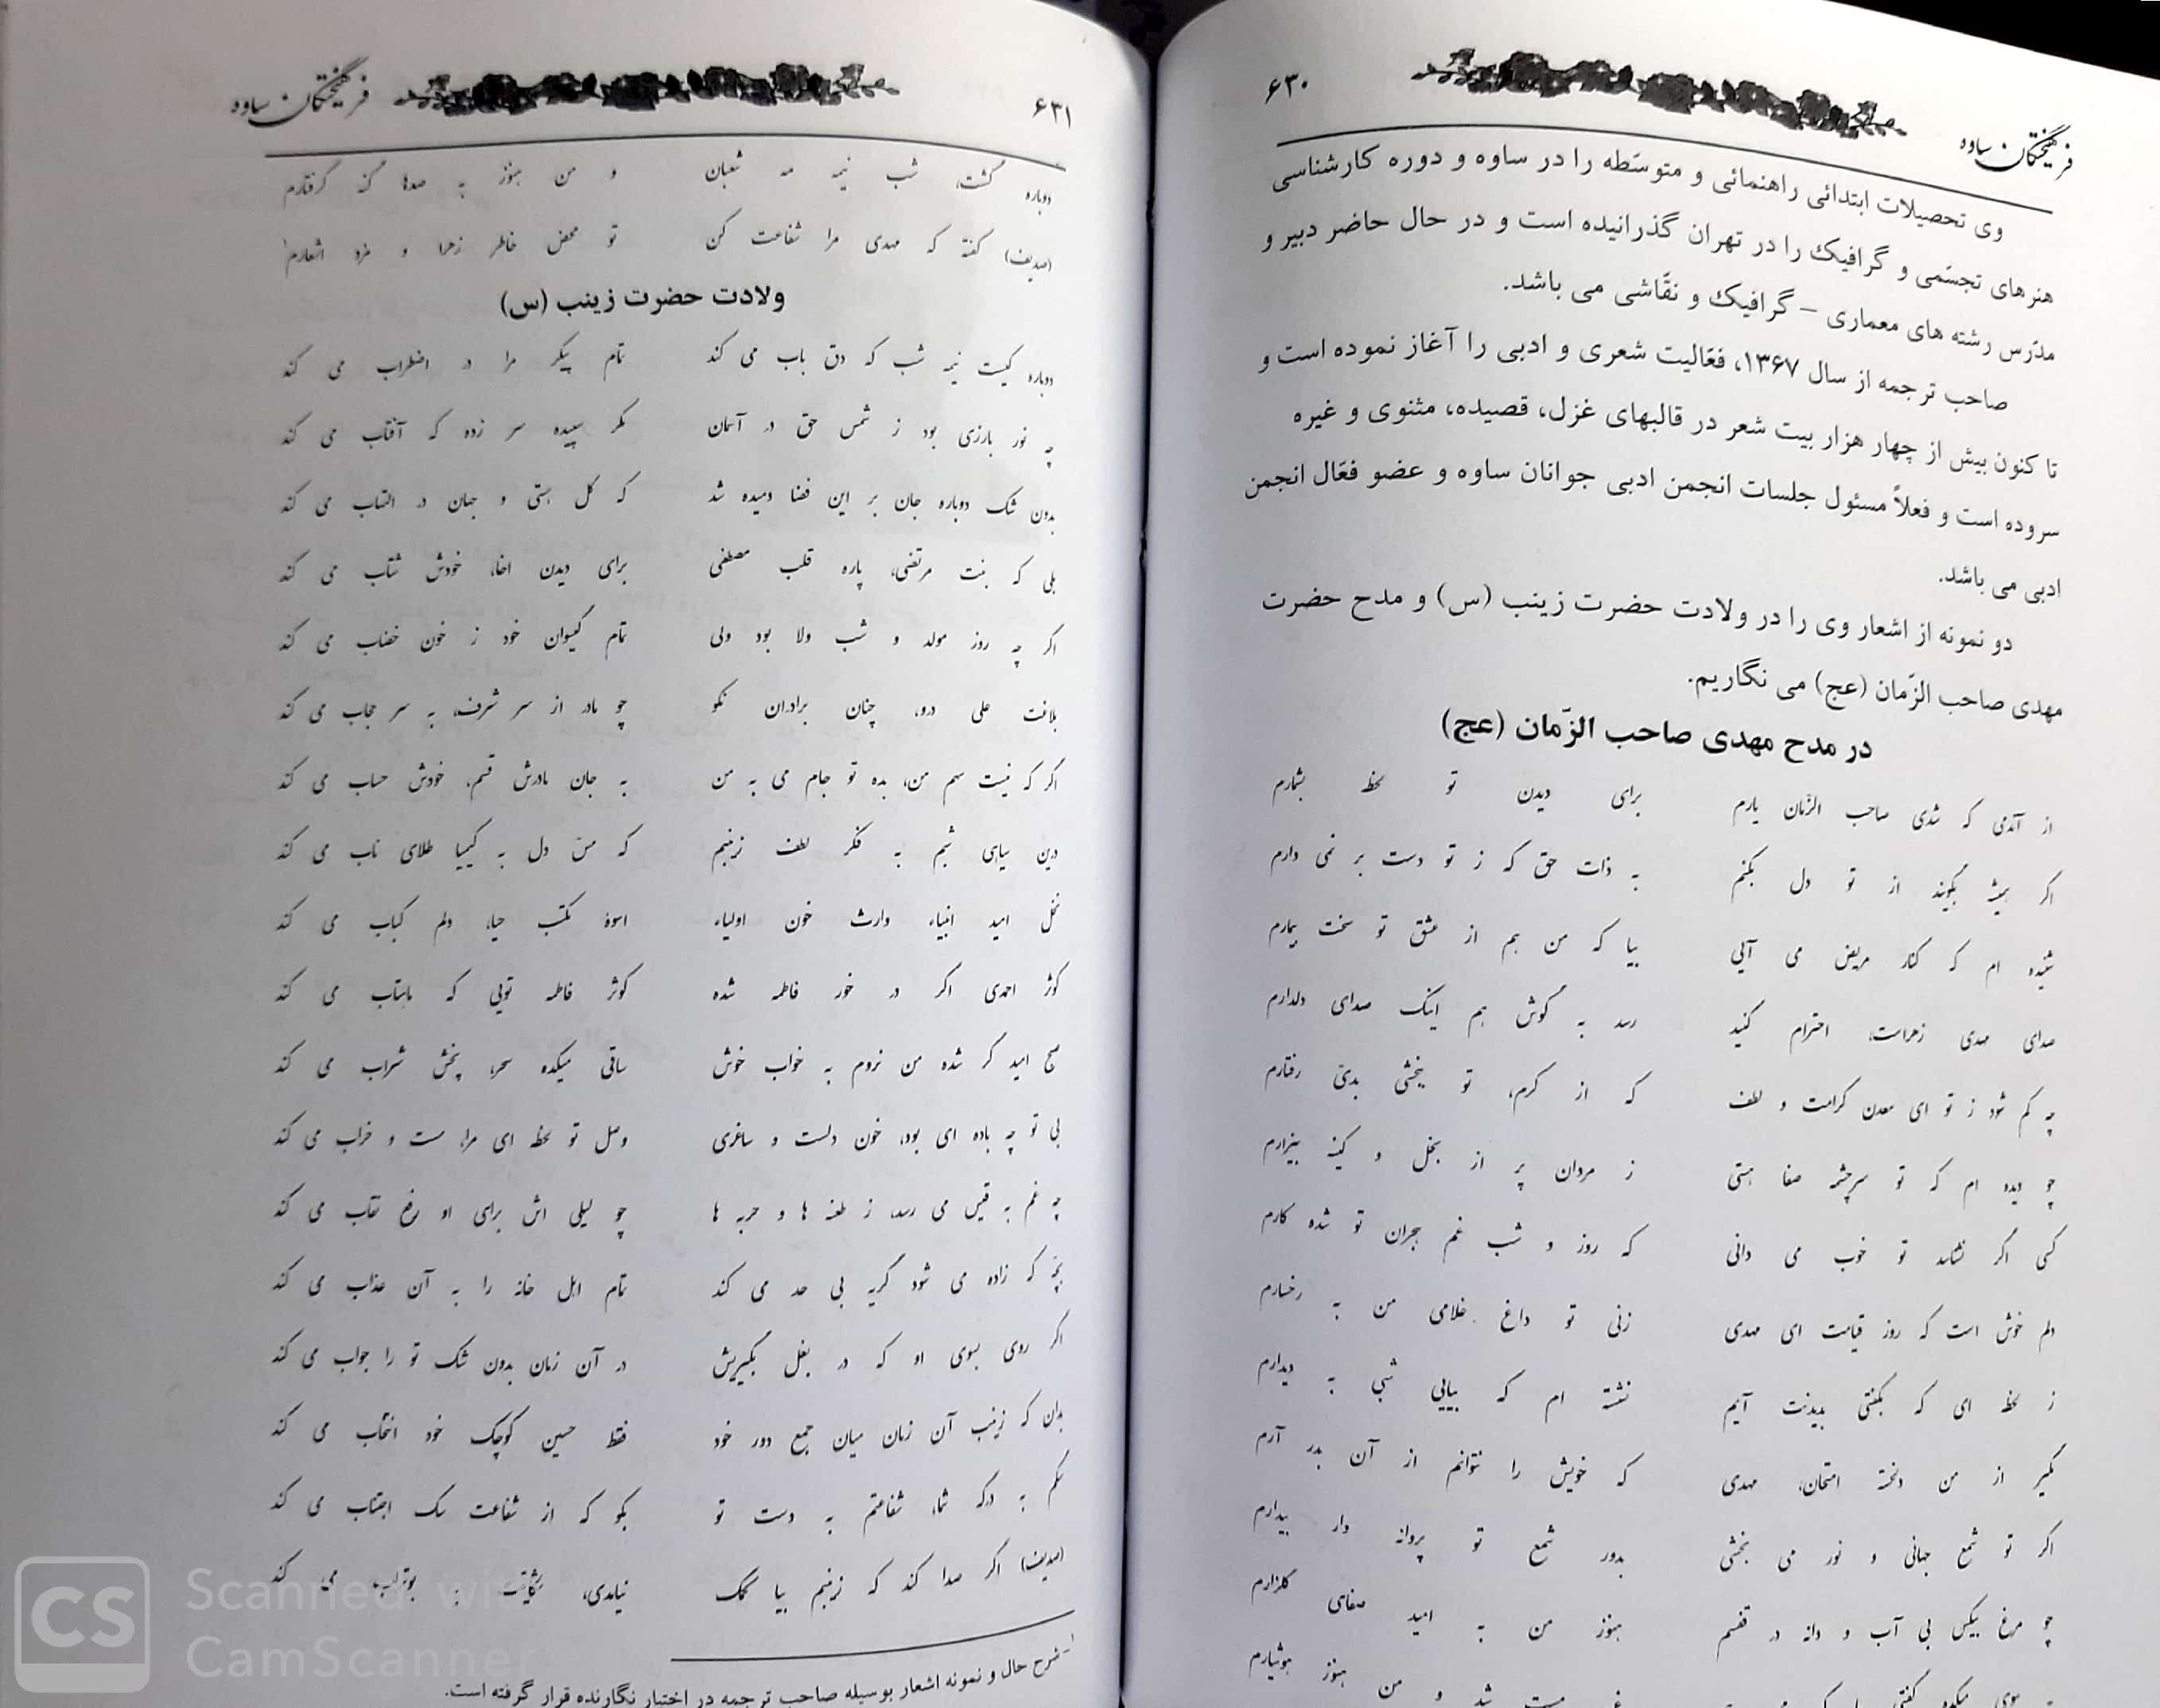 ۶۳۰
فرهیختگان ساوه
وی تحصیلات ابتدائی راهنمائی و متوسّطه را در ساوه و دوره کارشناسی
هنرهای تجسّمی و گرافیک را در تهران گذرانیده است و در حال حاضر دبیر و
مدّرس رشته های معماری – گرافیک و نقّاشی می باشد.
صاحب ترجمه از سال ۱۳۶۷، فعّالیت شعری و ادبی را آغاز نموده است و
تا کنون بیش از چهار هزار بیت شعر در قالبهای غزل، قصیده، مثنوی و غیره
سروده است و فعلاً مسئول جلسات انجمن ادبی جوانان ساوه و عضو فعّال انجمن
ادبی می باشد.
دو نمونه از اشعار وی را در ولادت حضرت زینب (س) و مدح حضرت
مهدی صاحب الزّمان (عج) می نگاریم.
در مدح مهدی صاحب الزّمان (عج)
از آندمی که شدی صاحب الزّمان یارم برای دیدن تو لحظه بشمارم
اگر همیشه بگویند از تو دل بکنم به ذات حق که ز تو دست بر نمی دارم
شنیده ام که کنار مریض می آیی بیا که من هم از عشق تو سخت بیمارم
صدای مهدی زهراست، احترام کنید رسد به گوش هم اینک صدای دلدارم
چه کم شود ز تو ای معدن کرامت و لطف که از کرم، تو ببخشی بدیّ رفتارم
چو دیده ام که تو سرچشمه صفا هستی ز مردان پر از بخل و کینه بیزارم
کسی اگر نشناسد تو خوب می دانی که روز و شب غم هجران تو شده کارم
دلم خوش است که روز قیامت ای مهدی زنی تو داغ غلامی من به رخسارم
ز لحظه ای که بگفتی بدیدنت آیم نشسته ام که بیایی شبی به دیدارم
مگیر از من دلخسته امتحان، مهدی که خویش را نتوانم از آن بدر آرم
اگر تو شمع جهانی و نور می بخشی بدور شمع تو پروانه وار بیدارم
چو مرغ بیکس بی آب و دانه در قفسم هنوز من به امید صفای گلزارم
میکده مست شد و من هنوز هوشیارم
۶۳۱
فرهیختگان ساوه
دوباره گشت، شب نیمه مه شعبان و من هنوز به صدها گنه گرفتارم
(صدیف) گفته که مهدی مرا شفاعت کن تو محض خاطر زهرا و مزد اشعارم۱
ولادت حضرت زینب (س)
دوباره کیست نیمه شب که دق باب می کند تمام پیکر مرا در اضطراب می کند
چه نور بارزی بود ز شمس حق در آسمان مگر سپیده سر زده که آفتاب می کند
بدون شک دوباره جان بر این فضا دمیده شد که کل هستی و جهان در التهاب می کند
بلی که بنت مرتضی، پاره قلب مصطفی برای دیدن اخا، خودش شتاب می کند
اگر چه روز مولد و شب ولا بود ولی تمام گیسوان خود ز خون خضاب می کند
بلاغت علی درو، چنان برادران نکو چو مادر از سر شرف، به سر حجاب می کند
اگر که نیست سهم من، بده تو جام می به من به جان مادرش قسم، خودش حساب می کند
درین سیاهی شبم به فکر لطف زینبم که مسّ دل به کیمیا طلای ناب می کند
نخل امید انبیاء وارث خون اولیاء اسوهٔ مکتب حیا، دلم کباب می کند
کوثر احمدی اگر در خور فاطمه شده کوثر فاطمه تویی که ماهتاب می کند
صبح امید گر شده من نروم به خواب خوش ساقی میکده سحر، پخش شراب می کند
بی تو چه باده ای بود، خون دلست و ساغری وصل تو لحظه ای مرا، مست و خراب می کند
چه غم به قیس می رسد، ز طعنه ها و حربه ها چو لیلی اش برای او رفع نقاب می کند
بچّه که زاده می شود گریه بی حد می کند تمام اهل خانه را به آن عذاب می کند
اگر روی بسوی او که در بغل بگیریش در آن زمان بدون شک تو را جواب می کند
بدان که زینب آن زمان میان جمع دور خود فقط حسین کوچک خود انتخاب می کند
سگم به درگه شما، شفاعتم به دست تو بگو که از شفاعت سگ اجتناب می کند
(صدیف) اگر صدا کند که زینبم بیا کمک نیامدی، شکایتت به بوتراب می کند
۱- شرح حال و نمونه اشعار بوسیله صاحب ترجمه در اختیار نگارنده قرار گرفته است.
CS Scanned with
CamScanner